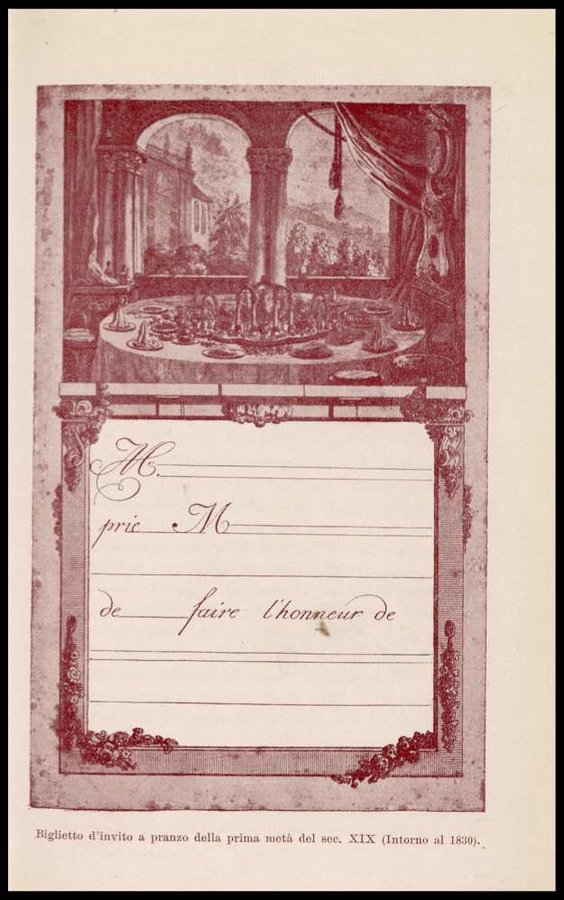 M.
prie M
de faire l'honneur de
Biglietto d'invito a pranzo della prima metà del sec. XIX (Intorno al 1830).